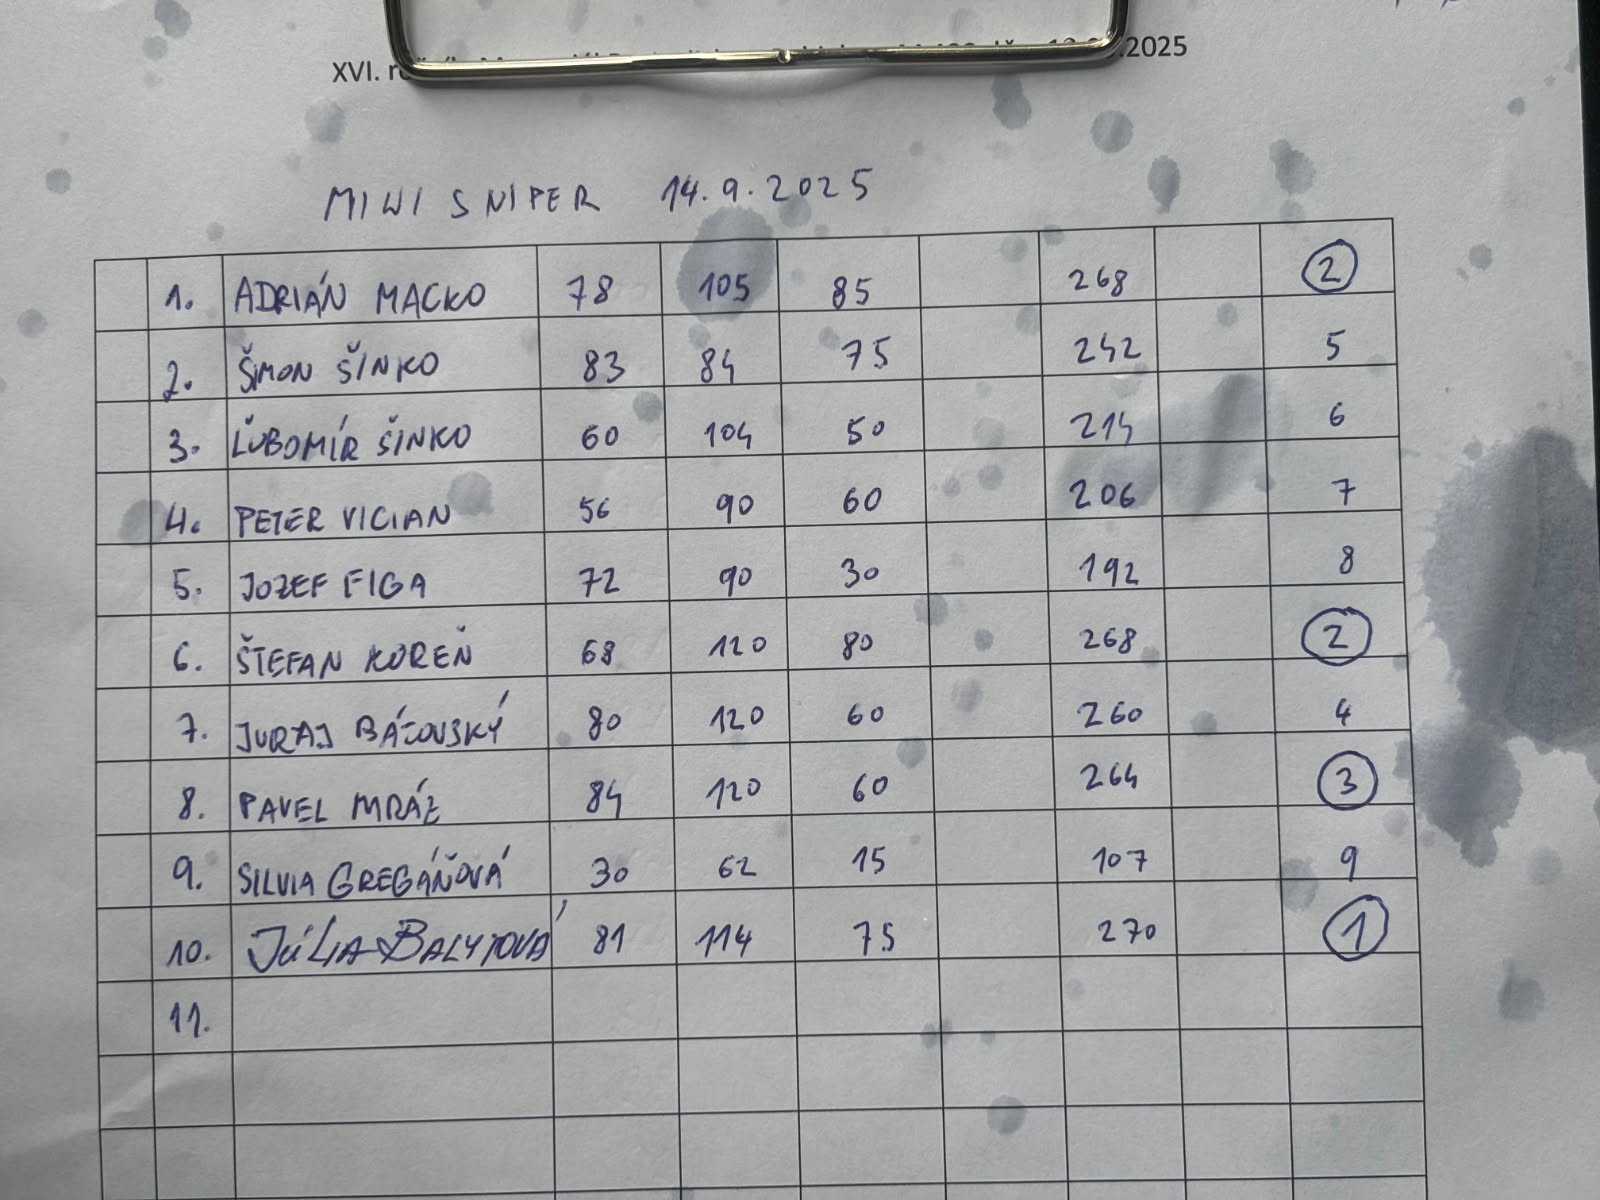 XVI. 2025
MINI SNIPER 14.9.2025
1. ADRIÁN MACKO 78 105 85 268 2
2. ŠIMON ŠINKO 83 84 75 242 5
3. ĽUBOMÍR ŠINKO 60 104 50 214 6
4. PETER VICIAN 56 90 60 206 7
5. JOZEF FIGA 72 90 30 192 8
6. ŠTEFAN KOREŇ 68 120 80 268 2
7. JURAJ 80 120 60 260 4
8. PAVEL MRÁZ 84 120 60 264 3
9. SILVIA GREGÁŇOVÁ 30 62 15 107 9
10. JÚLIA 81 114 75 270 1
11.